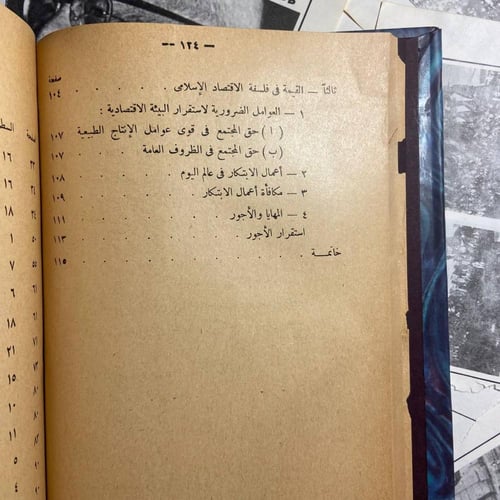 — ١٢٤ —
صفحة
ثالثاً — القيمة فى فلسفة الاقتصاد الإسلامى . . . . . ١٠٤
١ — العوامل الضرورية لاستقرار البيئة الاقتصادية :
( ا ) حق المجتمع فى قوى عوامل الإنتاج الطبيعية ١٠٧
(ب) حق المجتمع فى الظروف العامة . . . . . ١٠٧
٢ — أعمال الابتكار فى عالم اليوم . . . . . . ١٠٨
٣ — مكافأة أعمال الابتكار . . . . . . ١٠٩
٤ — المهايا والأجور . . . . . . . ١١١
استقرار الأجور . . . . . . . . ١١٣
خاتمة . . . . . . . . . ١١٥
صفحة السطر
٢٣ ١٦
٢٤ ١٦
٢٤ ١٨
٥٠ ١
٥٥ ٧
٦١ ٦
٦١ ١٨
٧١ ٢١
٨٠ ١٥
٨٠ ١٠
٨٣ ١١
٥
٤